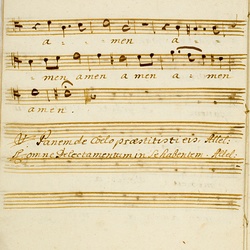 a - men a -
men amen amen a - men
amen.
℣. Panem de Cœlo præstitisti eis. Allel:
℟. Omne Delectamentum in Se habentem. Allel: